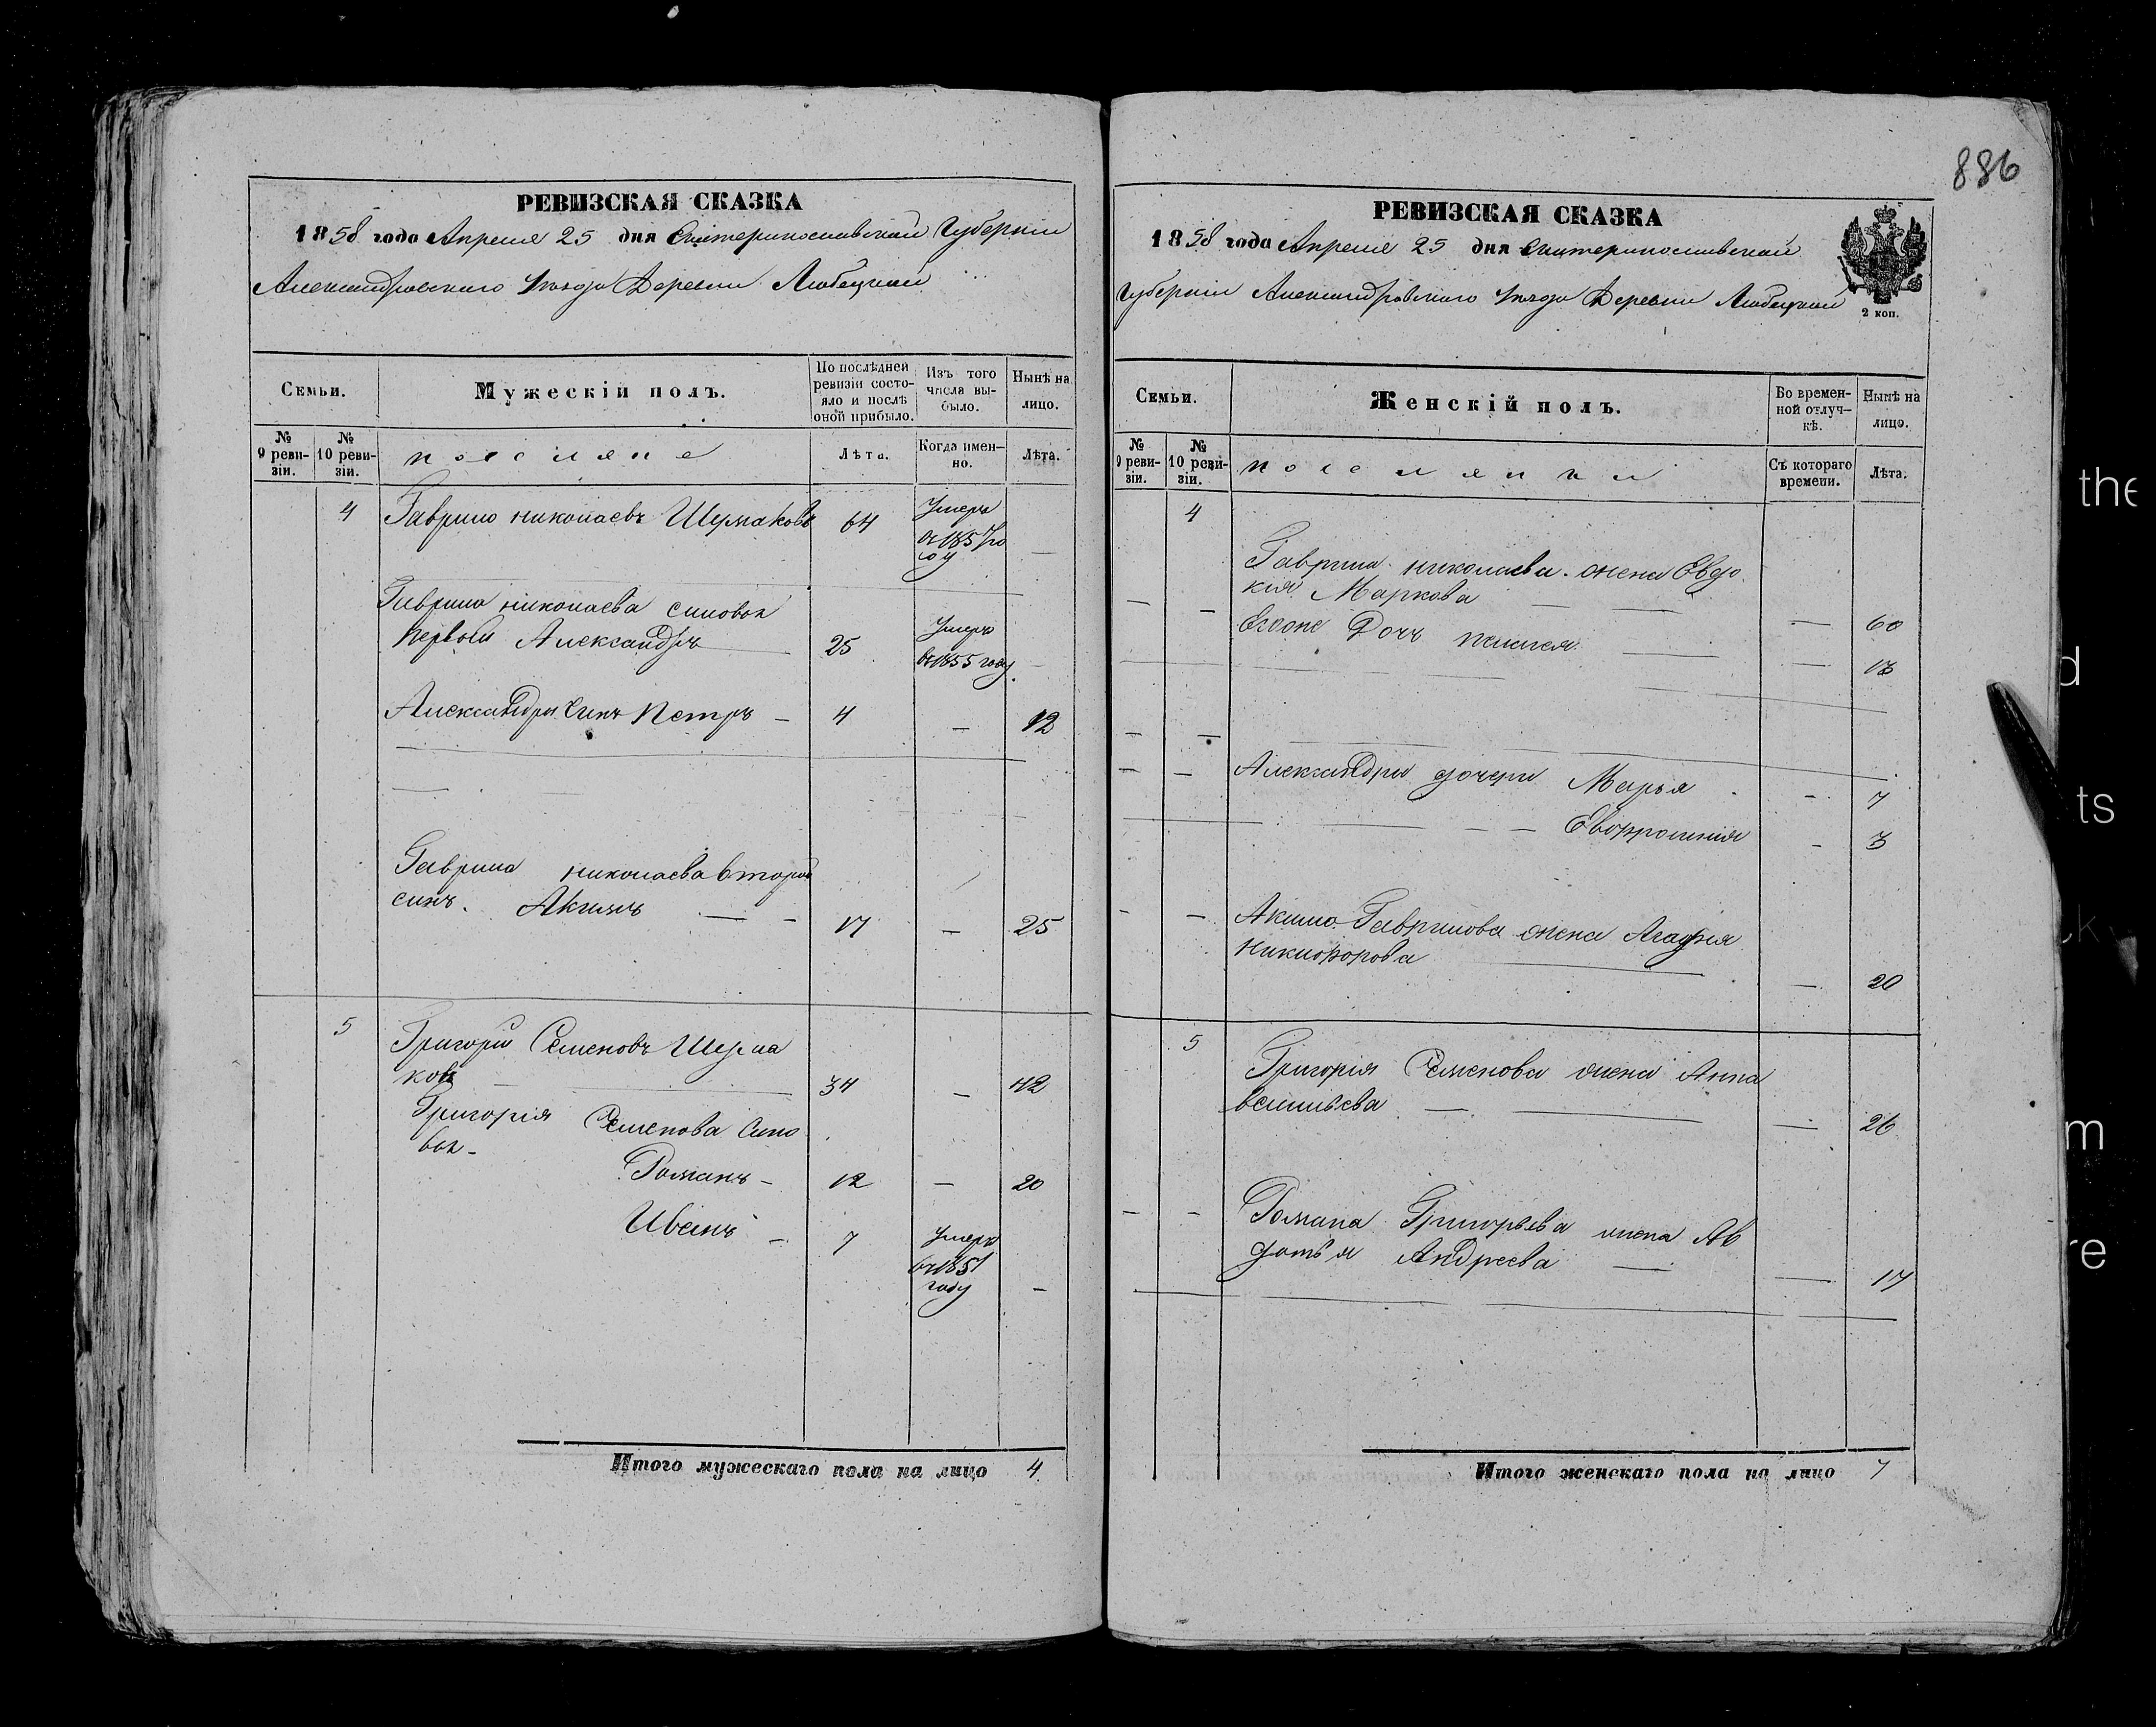 886
РЕВИЗСКАЯ СКАЗКА
1858 года Апреля 25 дня Екатеринославской Губернии
Александровского Уезда Деревни Любецкой
Семьи.
Мужескій полъ.
По послѣдней ревизіи состо-
яло и послѣ
оной прибыло.
Изъ того
числа вы-
было.
Нынѣ на
лицо.
№
9 реви-
зіи.
№
10 реви-
зіи.
поселяне
Лѣта.
Когда имен-
но.
Лѣта.
4 Гаврило Николаевъ Шермаковъ 64 Умеръ
въ 1857 го
ду —
Гаврила Николаева синовья
Первый Александръ 25 Умеръ
въ 1855 году —
Александры Синъ Петръ — 4 — 12
Гаврила Николаева второй
синъ. Акимъ — — 17 — 25
5 Григорий Семеновъ Шерма
ковъ — 34 — 42
Григория Семенова Сино
вья -
Романъ - 12 — 20
Иванъ - 7 Умеръ
въ 1851
году —
Итого мужескаго пола на лицо 4.
РЕВИЗСКАЯ СКАЗКА
1858 года Апреля 25 дня Екатеринославской
Губернии Александровского Уезда Деревни Любецкой
2 коп.
Семьи.
Женскій полъ.
Во времен-
ной отлуч-
кѣ.
Нынѣ на
лицо.
№
9 реви-
зіи.
№
10 реви-
зіи.
поселянки
Съ котораго
времени.
Лѣта.
4
Гаврила Николаева жена Евдо
кия Маркова — 60
Егоже Дочь Пелагея — 13
Александры дочери Марья - 7
Евфросиния - 3
Акима Гаврилова жена Агафия
Никифорова — 20
5 Григория Семенова жена Анна
Васильева — 26
Романа Григорьева жена Ав
дотья Андреева — 17
Итого женскаго пола на лицо 7
the
ts
m
re